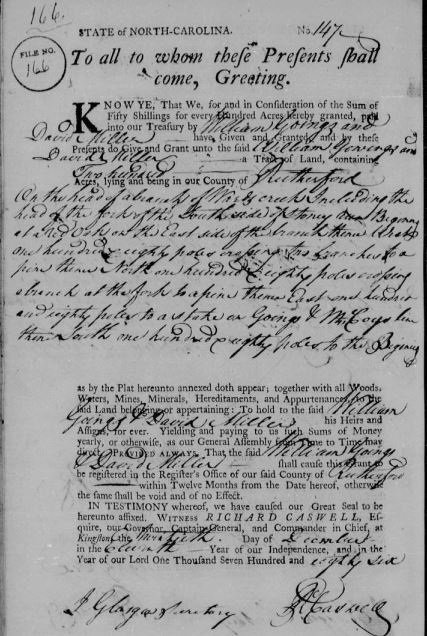 166.
FILE NO.
166
STATE of NORTH-CAROLINA. No. 147
To all to whom theſe Preſents ſhall
come, Greeting.
KNOW YE, That We, for and in Conſideration of the Sum of
Fifty Shillings for every Hundred Acres hereby granted, paid
into our Treasury by William Goings and
David Miller have Given and Granted, and by theſe
Preſents do Give and Grant unto the ſaid William Goings and
David Miller a Tract of Land, containing
Two hundred
Acres, lying and being in our County of Rutherford
On the head of a branch of creek Including the
head of the fork of the South side of Stoney
at a Red Oak on the East side of the branch thence West
one hundred & eighty poles crossing two branches to a
pine thence North one hundred & eighty poles crossing
a branch at the fork to a pine thence East one hundred
and eighty poles to a stake on Goings & McCoys line
then South one hundred & eighty poles to the Begining
as by the Plat hereunto annexed doth appear; together with all Woods,
Waters, Mines, Minerals, Hereditaments, and Appurtenances, to the
ſaid Land belonging or appertaining: To hold to the ſaid William
Goings & David Miller his Heirs and
Aſſigns, for ever. Yielding and paying to us ſuch Sums of Money
yearly, or otherwiſe, as our General Aſſembly from Time to Time may
direct. PROVIDED ALWAYS, That the ſaid William Goings
& David Miller ſhall cauſe this Grant to
be regiſtered in the Regiſter's Office of our ſaid County of Rutherford
within Twelve Months from the Date hereof, otherwiſe
the ſame ſhall be void and of no Effect.
IN TESTIMONY whereof, we have cauſed our Great Seal to be
hereunto affixed. WITNESS RICHARD CASWELL, Eſ-
quire, our Governor, Captain-General, and Commander in Chief, at
Kingſton, the Day of December
in the eleventh Year of our Independence, and in the
Year of our Lord One Thouſand Seven Hundred and eighty six
J Glasgow Secretary
Rd Caswell